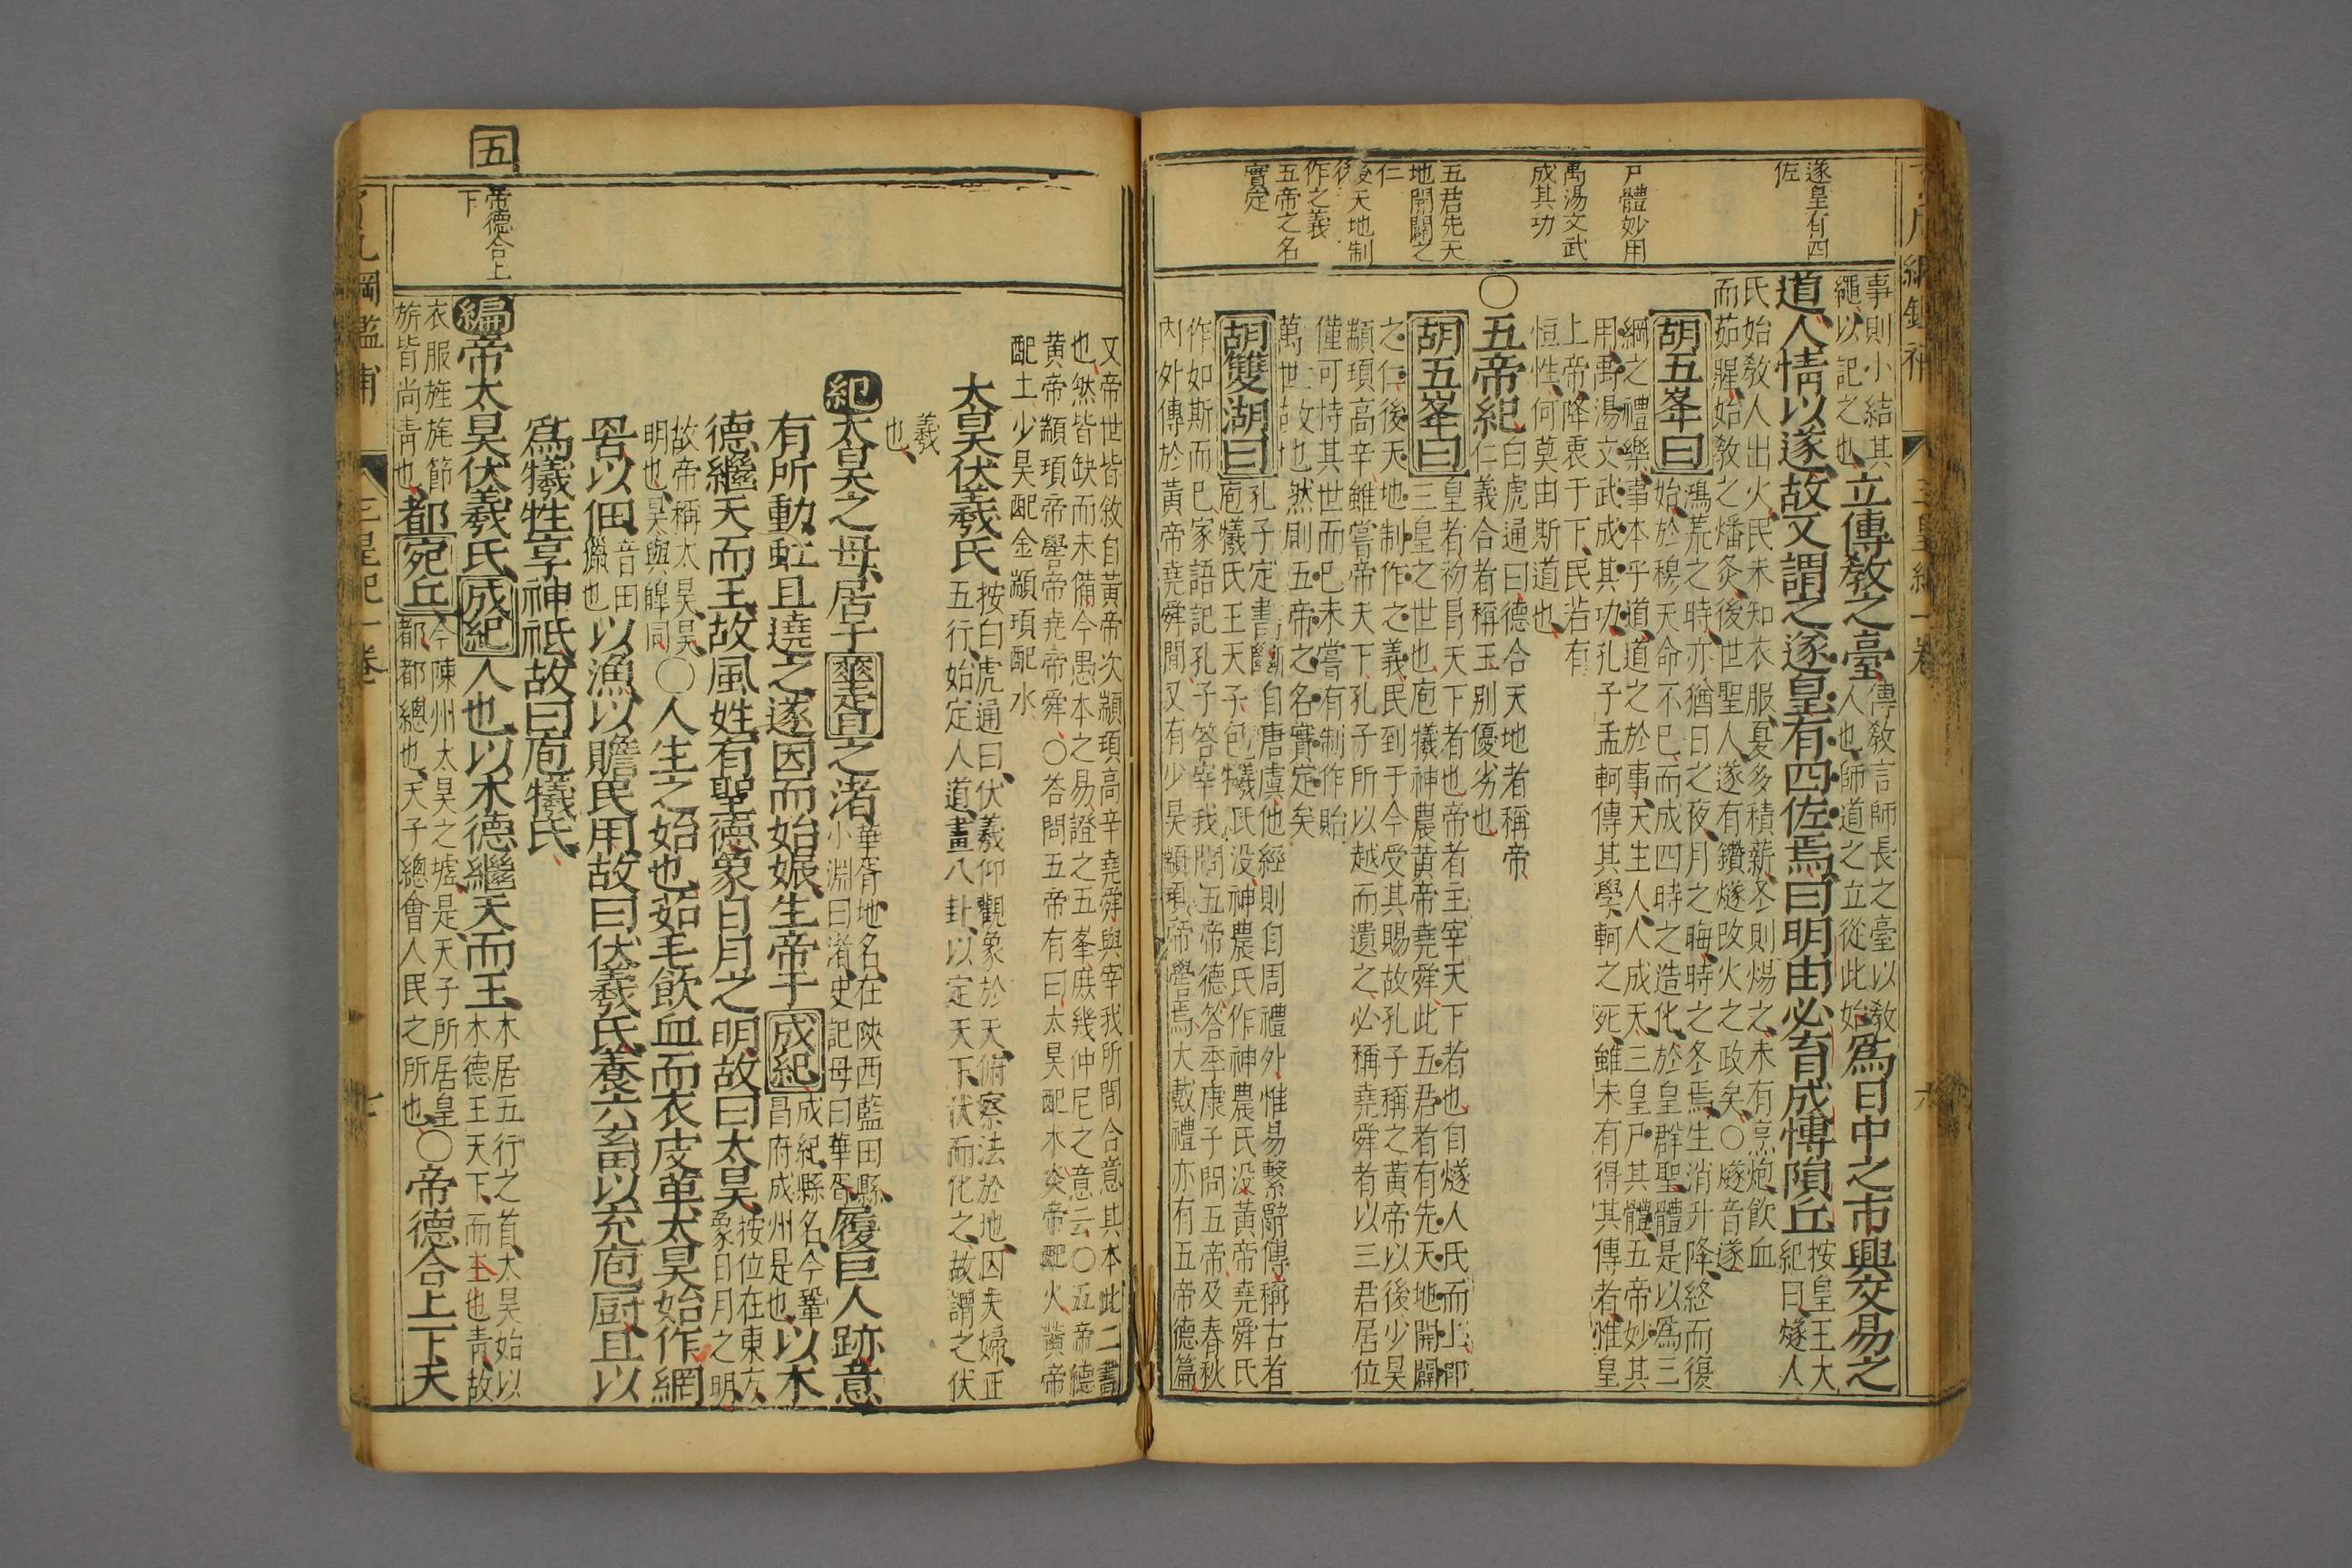 遂皇有四
佐
尸體妙用
禹湯文武
成其功
五君先天
地開闢之
仁
後天地制
作之義
五帝之名
實定
事則小結其
繩以記之也
立傳教之臺
傳教言師長之臺以教
人也師道之立從此始
為日中之市興交易之
道人情以遂故又謂之遂皇有四佐焉曰明由必育成博隕丘
按皇王大
紀曰燧人
氏始教人出火民未知衣服夏多積薪冬則煬之未有烹炮飲血
而茹腥始教之燔炙後世聖人遂有鑽燧改火之政矣○燧音遂
胡五峯曰
鴻荒之時亦猶日之夜月之晦時之冬焉生消升降終而復
始於穆天命不已而成四時之造化於皇群聖體是以為三
綱之禮樂事本乎道道之於事天生人人成天三皇尸其體五帝妙其
用禹湯文武成其功孔子孟軻傳其學軻之死雖未有得其傳者惟皇
上帝降衷于下民若有
恒性何莫由斯道也
○五帝紀
白虎通曰德合天地者稱帝
仁義合者稱王別優劣也
胡五峯曰
皇者初昌天下者也帝者主宰天下者也自燧人氏而上即
三皇之世也庖犧神農黃帝堯舜此五君者有先天地開闢
之仁後天地制作之義民到于今受其賜故孔子稱之黃帝以後少昊
顓頊高辛雖嘗帝天下孔子所以越而遺之必稱堯舜者以三君居位
僅可持其世而已未嘗有制作貽
萬世故也然則五帝之名實定矣
胡雙湖曰
孔子定書斷自唐虞他經則自周禮外惟易繫辭傳稱古者
庖犧氏王天子包犧氏沒神農氏作神農氏沒黃帝堯舜氏
作如斯而已家語記孔子答宰我問五帝德答季康子問五帝及春秋
內外傳於黃帝堯舜間又有少昊顓頊帝嚳焉大戴禮亦有五帝德篇
文帝世皆敘自黃帝次顓頊高辛堯舜與宰我所問合意其本此二書
也然皆缺而未備今愚本之易證之五峯庶幾仲尼之意云○五帝德
黃帝顓頊帝嚳帝堯帝舜○答問五帝有曰太昊配木炎帝配火黃帝
配土少昊配金顓頊配水
太昊伏羲氏
按白虎通曰伏羲仰觀象於天俯察法於地因夫婦正
五行始定人道畫八卦以定天下伏而化之故謂之伏
羲
也
紀太昊之母居于華胥之渚
華胥地名在陝西藍田縣
小淵曰渚史記母曰華胥
履巨人跡意
有所動虹且遶之遂因而始娠生帝于成紀
成紀縣名今鞏
昌府成州是也
以木
德繼天而王故風姓有聖德象日月之明故曰太昊
按位在東方
象日月之明
故帝稱太昊昊
明也昊與皥同
○人生之始也茹毛飲血而衣皮革太昊始作網
罟以佃
音田
獵也
以漁以贍民用故曰伏羲氏養六畜以充庖厨且以
為犧牲享神祇故曰庖犧氏
五
帝德合上
下
編帝太昊伏羲氏成紀人也以木德繼天而王
木居五行之首太昊始以
木德王天下而主也青故
衣服旌旄節
旂皆尚青也
都宛丘
今陳州太昊之墟是天子所居皇
都都總也天子總會人民之所也
○帝德合上下天
三皇紀一卷